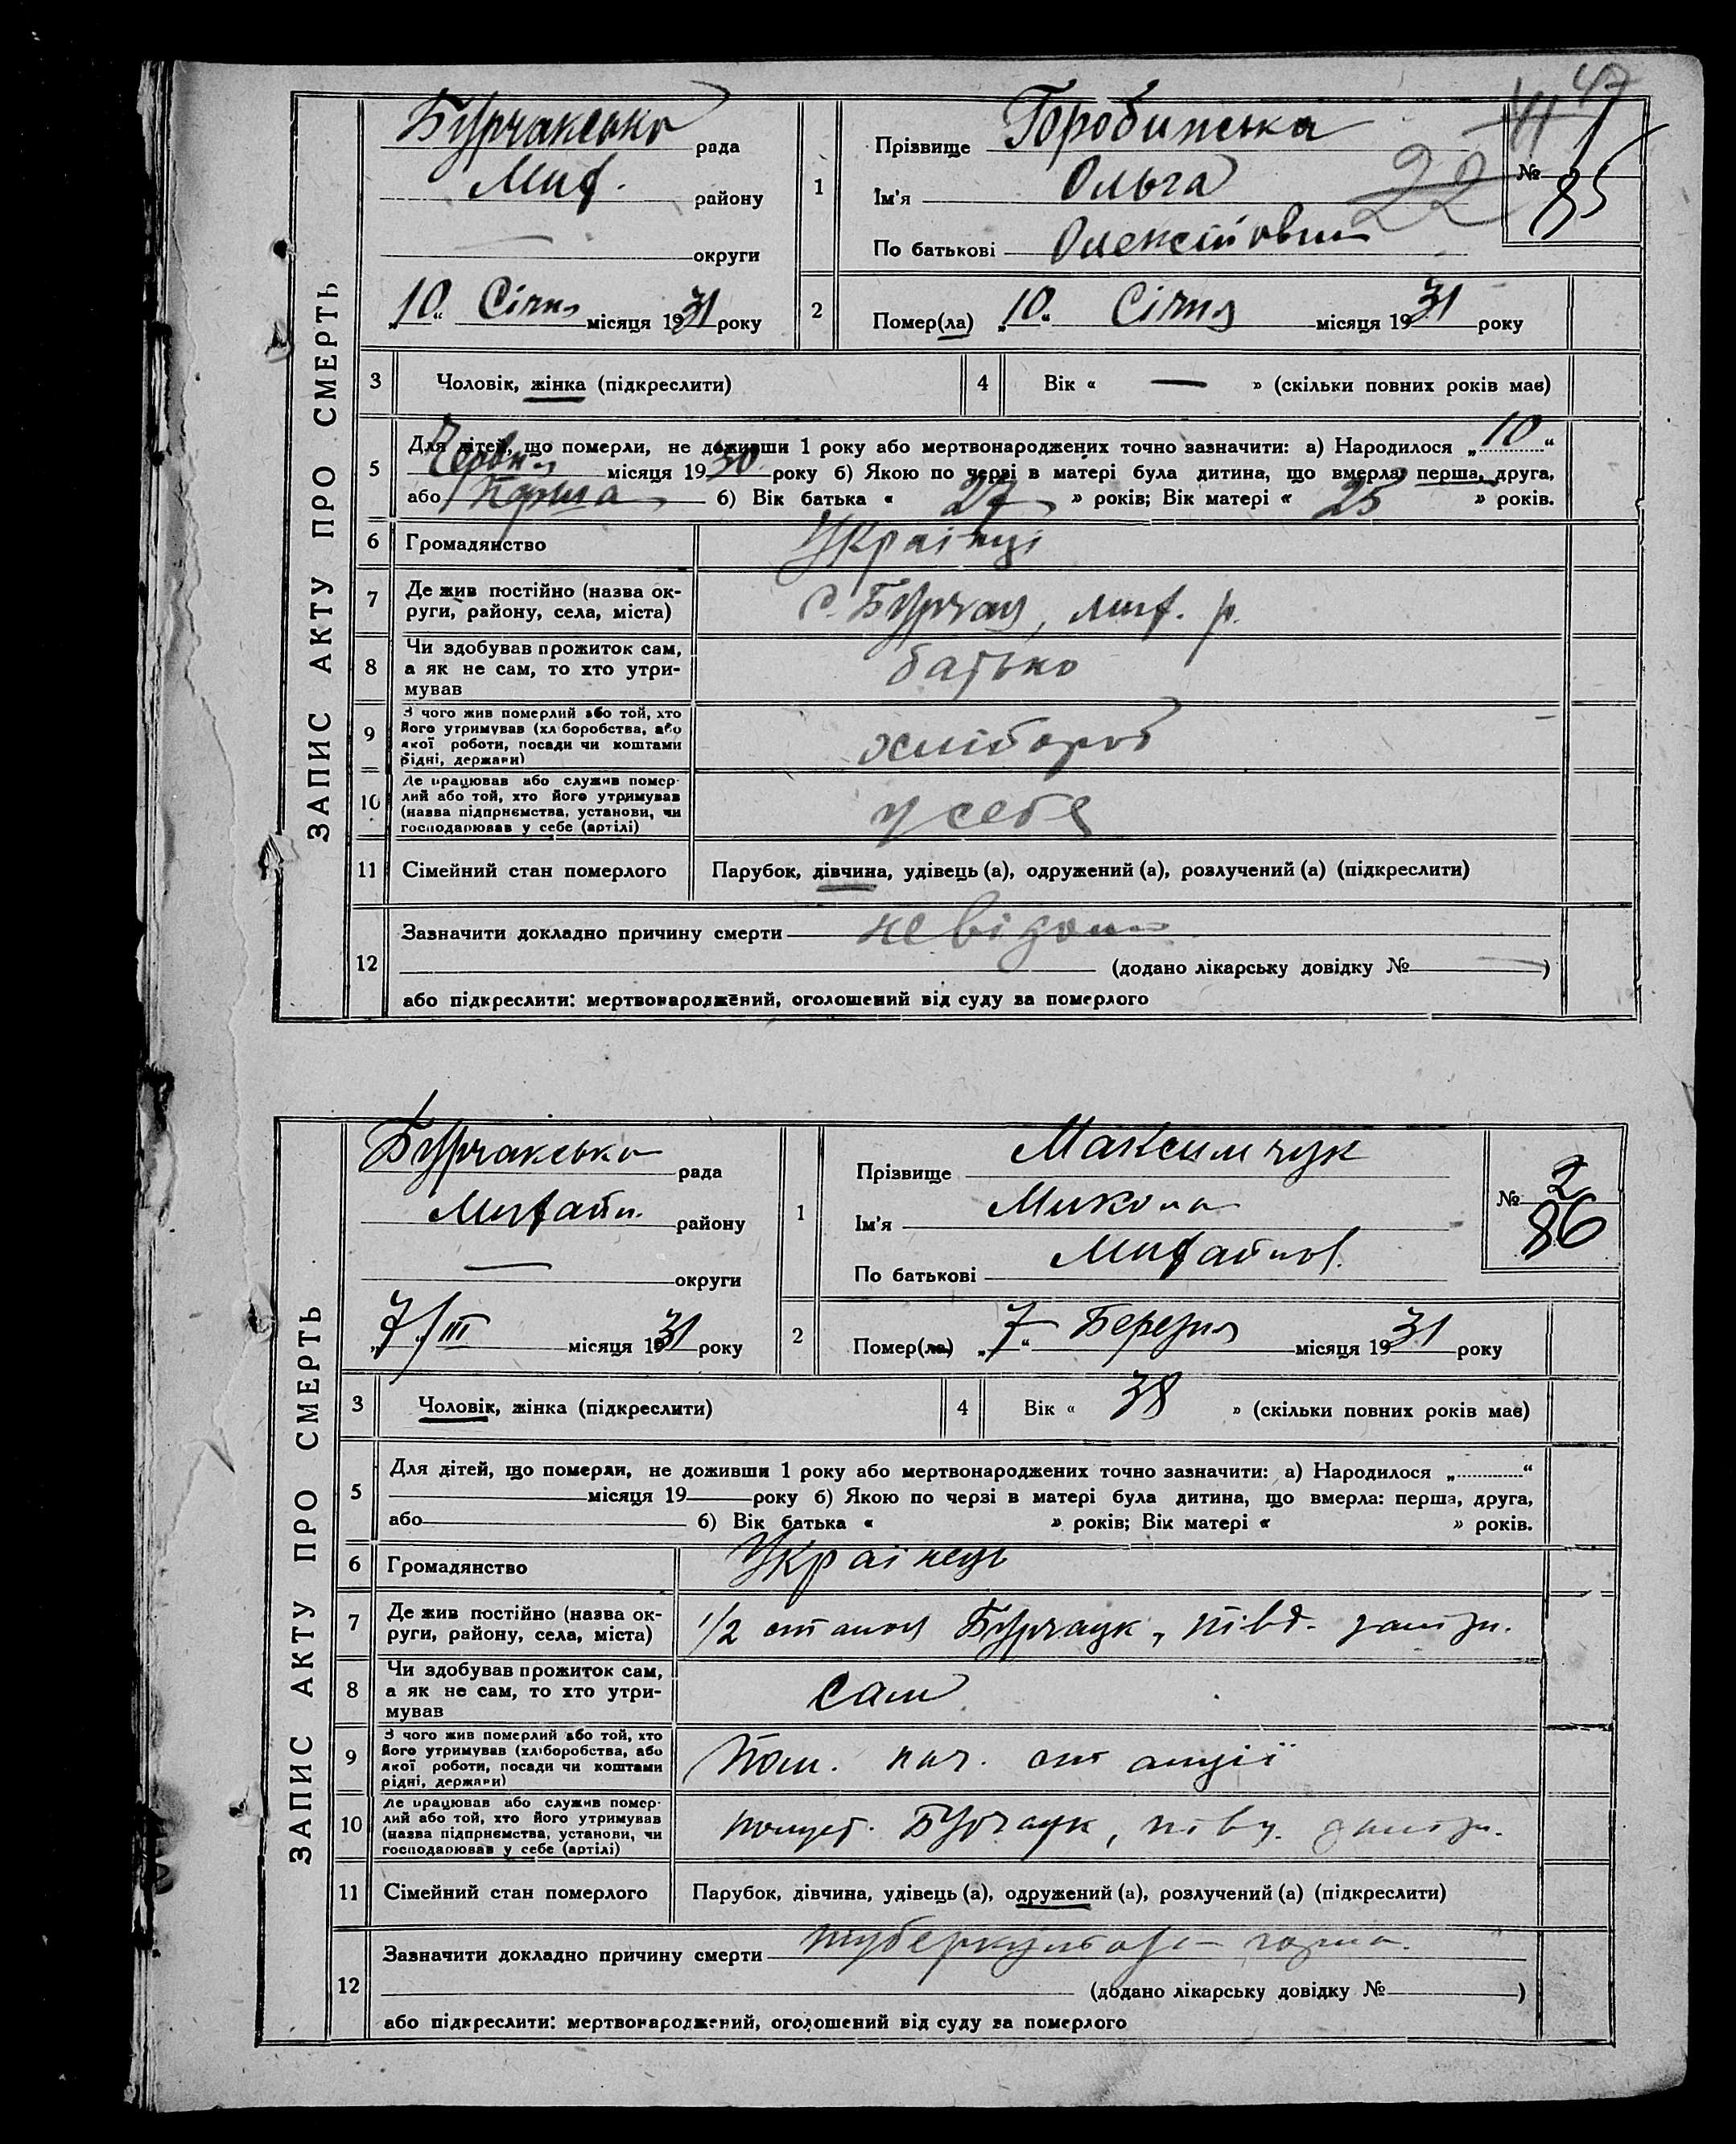 47
41
22
ЗАПИС АКТУ ПРО СМЕРТЬ
Бурчаксько рада
Мих. району
— округи
„10“ Січня місяця 1931 року
1
Прізвище Горобинська
Ім'я Ольга
По батькові Олексіївна
№ 1
85
2
Помер(ла) „10“ Січня місяця 1931 року
3
Чоловік, жінка (підкреслити)
4
Вік « — » (скільки повних років має)
5
Для дітей, що померли, не доживши 1 року або мертвонароджених точно зазначити: а) Народилося „10“
Червня місяця 1930 року б) Якою по черзі в матері була дитина, що вмерла: перша, друга,
або Перша б) Вік батька « 27 » років; Вік матері « 25 » років.
6
Громадянство Українці
7
Де жив постійно (назва ок-
руги, району, села, міста)
с. Бурчак, мих. р.
8
Чи здобував прожиток сам,
а як не сам, то хто утри-
мував
батько
9
З чого жив померлий або той, хто
його утримував (хліборобства, або
якої роботи, посади чи коштами
рідні, держави)
хлібороб
10
Де працював або служив помер-
лий або той, хто його утримував
(назва підприємства, установи, чи
господарював у себе (артілі)
у себе
11
Сімейний стан померлого
Парубок, дівчина, удівець (а), одружений (а), розлучений (а) (підкреслити)
12
Зазначити докладно причину смерти невідомо
(додано лікарську довідку № — )
або підкреслити: мертвонароджений, оголошений від суду за померлого
ЗАПИС АКТУ ПРО СМЕРТЬ
Бурчаксько рада
Михайл. району
— округи
„7/III місяця 1931 року
1
Прізвище Максимчук
Ім'я Микола
По батькові Михайлов.
№ 2
86
2
Помер(ла) „7“ Березня місяця 1931 року
3
Чоловік, жінка (підкреслити)
4
Вік « 38 » (скільки повних років має)
5
Для дітей, що померли, не доживши 1 року або мертвонароджених точно зазначити: а) Народилося „ “
місяця 19 року б) Якою по черзі в матері була дитина, що вмерла: перша, друга,
або б) Вік батька « » років; Вік матері « » років.
6
Громадянство Українець
7
Де жив постійно (назва ок-
руги, району, села, міста)
Бурчацк, півд. заліз.
8
Чи здобував прожиток сам,
а як не сам, то хто утри-
мував
сам
9
З чого жив померлий або той, хто
його утримував (хліборобства, або
якої роботи, посади чи коштами
рідні, держави)
Пом. нач. станції
10
Де працював або служив помер-
лий або той, хто його утримував
(назва підприємства, установи, чи
господарював у себе (артілі)
Бурчацк, півд. заліз.
11
Сімейний стан померлого
Парубок, дівчина, удівець (а), одружений (а), розлучений (а) (підкреслити)
12
Зазначити докладно причину смерти туберкульоза горла.
(додано лікарську довідку № )
або підкреслити: мертвонароджений, оголошений від суду за померлого